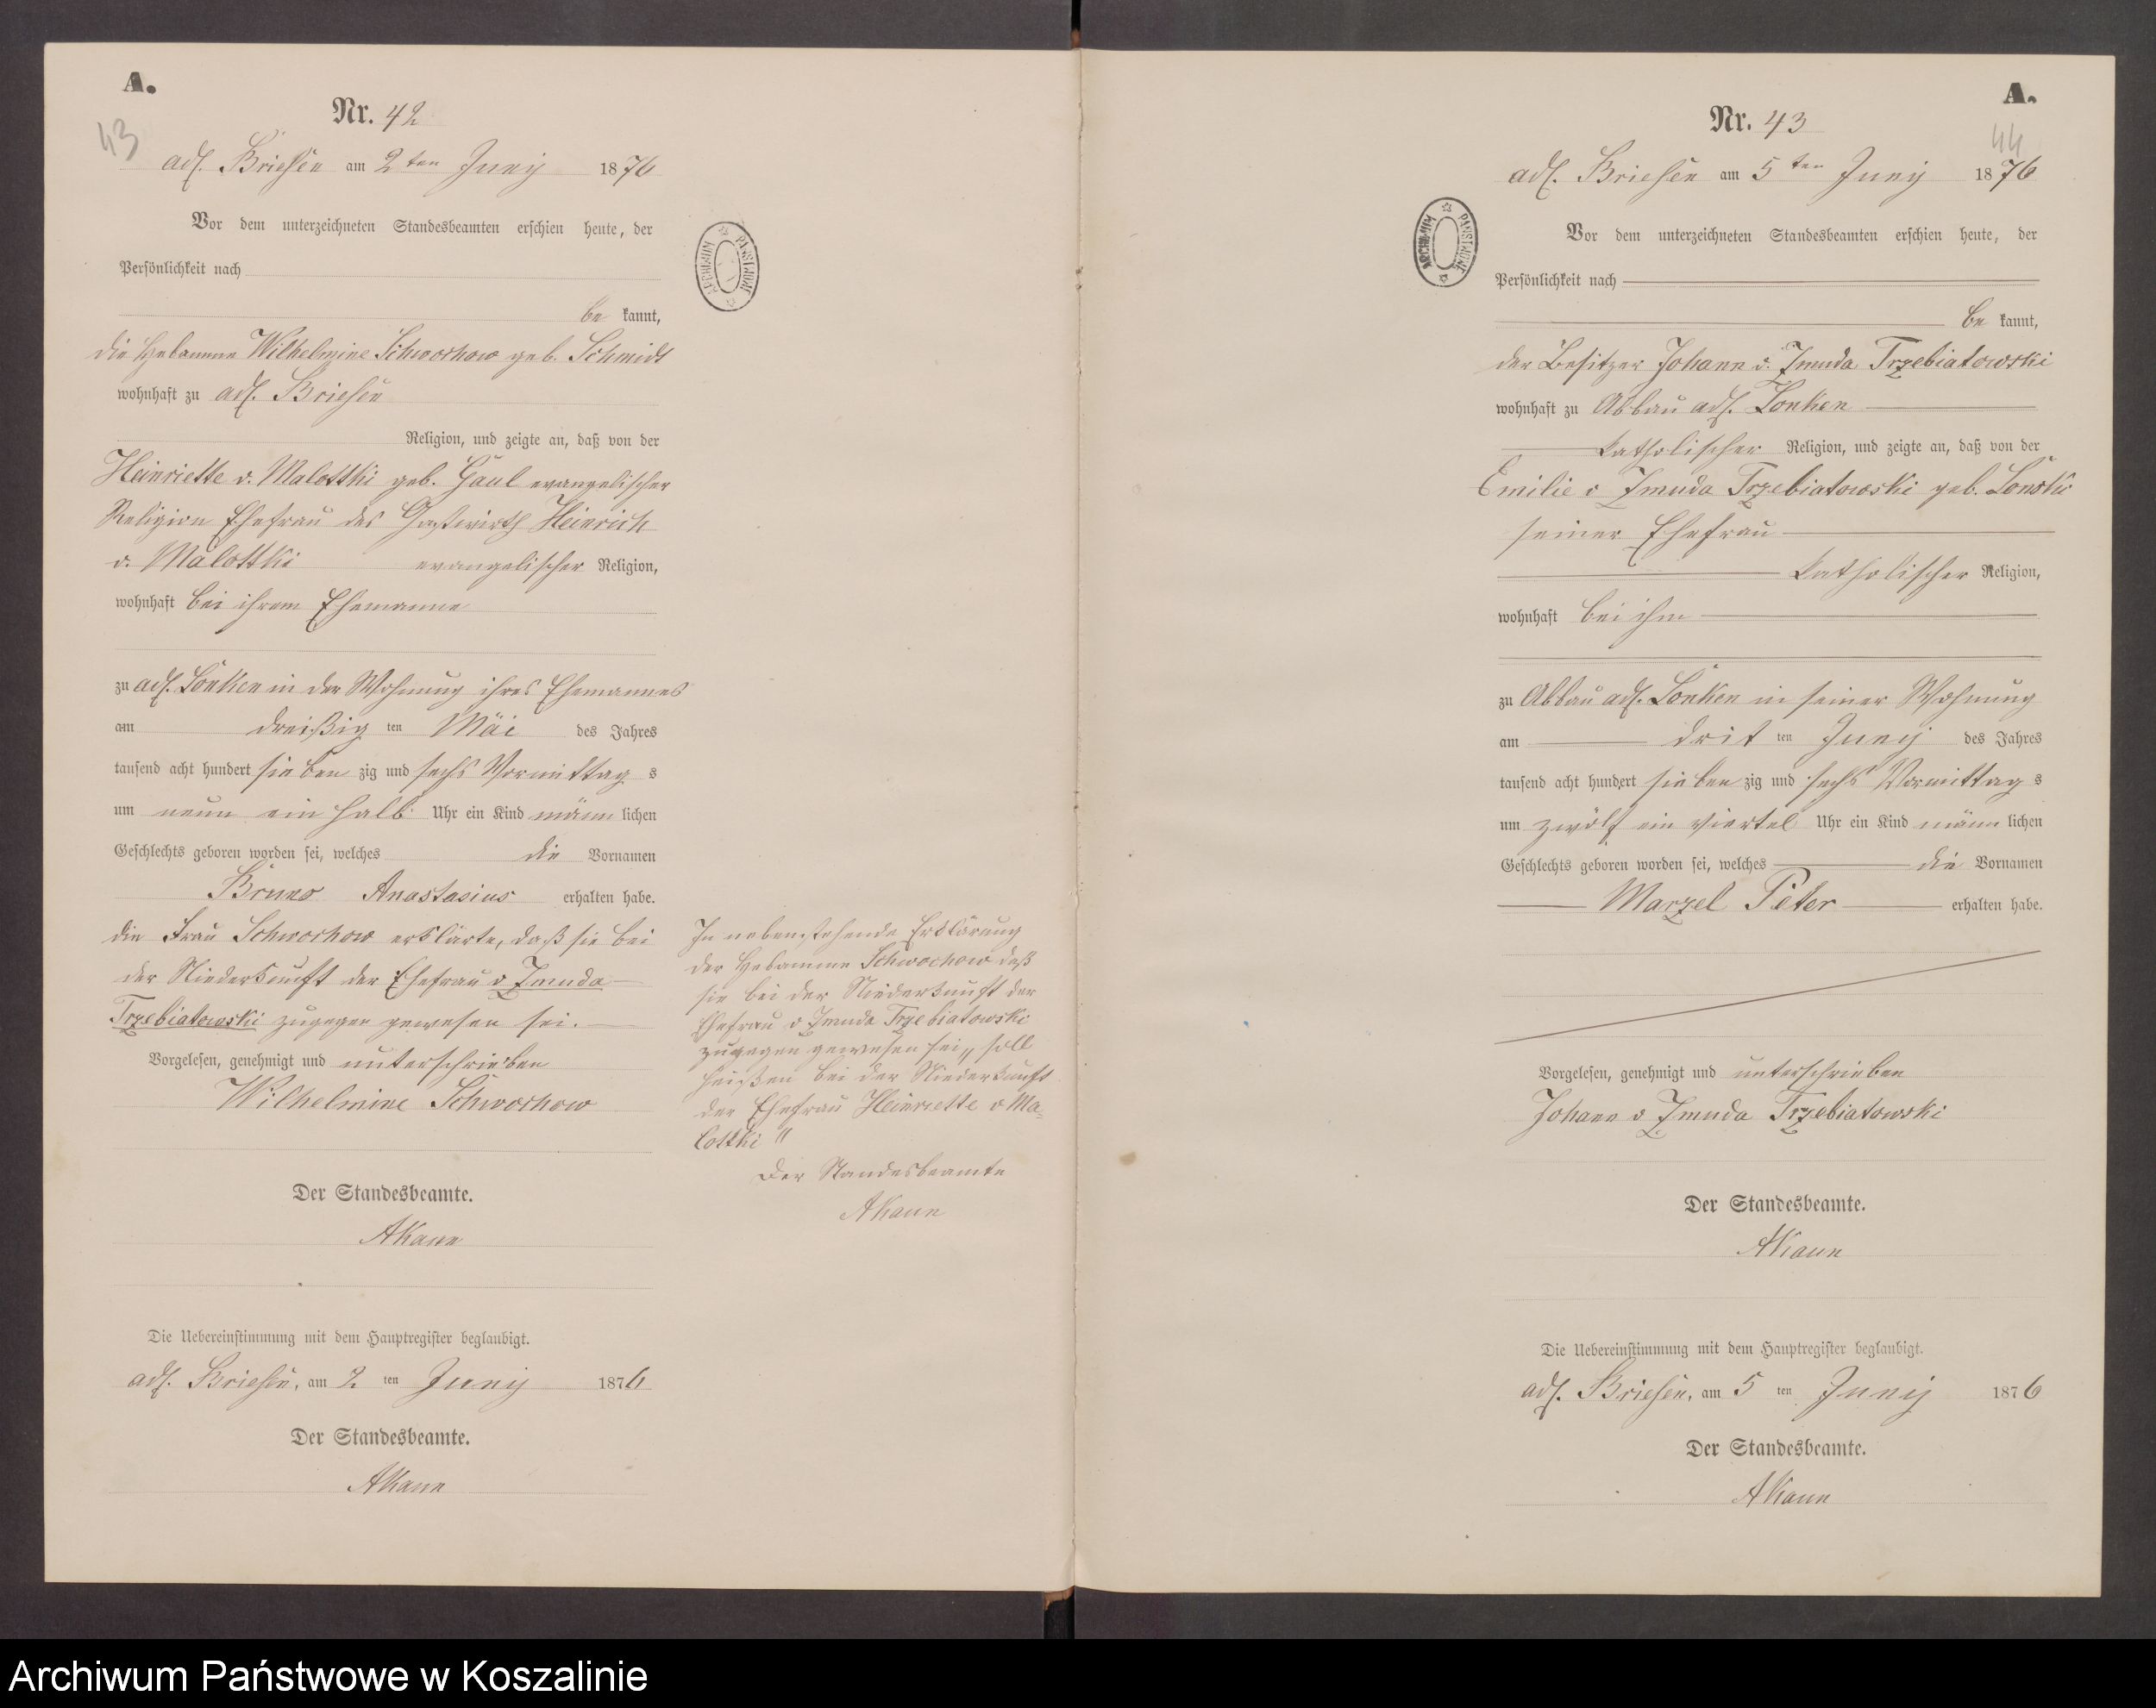 A.
Nr. 42
43
adl. Briesen am 2 ten Juny 1876
Vor dem unterzeichneten Standesbeamten erschien heute, der
Persönlichkeit nach
be kannt,
die Hebamme Wilhelmine Schwochow geb. Schmidt
wohnhaft zu adl. Briesen
Religion, und zeigte an, daß von der
Heinriette v. Malottki geb. Gaul evangelischer
Religion Ehefrau des Gastwirth Heinrich
v. Malottki evangelischer Religion,
wohnhaft bei ihrem Ehemanne
zu adl. Lonken in der Wohnung ihres Ehemannes
am dreißig ten Mai des Jahres
tausend acht hundert sieben zig und sechs Vormittag s
um neun ein halb Uhr ein Kind männ lichen
Geschlechts geboren worden sei, welches die Vornamen
Bruno Anastasius erhalten habe.
die Frau Schwochow erklärte, daß sie bei
der Niederkunft der Ehefrau v Zmuda
Trzebiatowski zugegen gewesen sei.
Vorgelesen, genehmigt und unterschrieben
Wilhelmine Schwochow
Der Standesbeamte.
AKaun
Die Uebereinstimmung mit dem Hauptregister beglaubigt.
adl. Briesen, am 2 ten Juny 1876
Der Standesbeamte.
AKaun
ARCHIWUM PAŃSTWOWE
In nebenstehende Erklärung
der Hebamme Schwochow daß
sie bei der Niederkunft der
Ehefrau v Zmuda Trzebiatowski
zugegen gewesen sei„ soll
heißen bei der Niederkunft
der Ehefrau Heinriette v Ma-
lottki "
Der Standesbeamte
AKaun
A.
Nr. 43
44
adl. Briesen am 5 ten Juny 1876
ARCHIWUM PAŃSTWOWE
Vor dem unterzeichneten Standesbeamten erschien heute, der
Persönlichkeit nach
be kannt,
der Besitzer Johann v. Zmuda Trzebiatowski
wohnhaft zu Abbau adl. Lonken
katholischer Religion, und zeigte an, daß von der
Emilie v Zmuda Trzebiatowski geb. Lonski
seiner Ehefrau
katholischer Religion,
wohnhaft bei ihm
zu Abbau adl. Lonken in seiner Wohnung
am drit ten Juny des Jahres
tausend acht hundert sieben zig und sechs Vormittag s
um zwölf ein viertel Uhr ein Kind männ lichen
Geschlechts geboren worden sei, welches die Vornamen
Marzel Peter erhalten habe.
Vorgelesen, genehmigt und unterschrieben
Johann v Zmuda Trzebiatowski
Der Standesbeamte.
AKaun
Die Uebereinstimmung mit dem Hauptregister beglaubigt.
adl. Briesen, am 5 ten Juny 1876
Der Standesbeamte.
AKaun
Archiwum Państwowe w Koszalinie